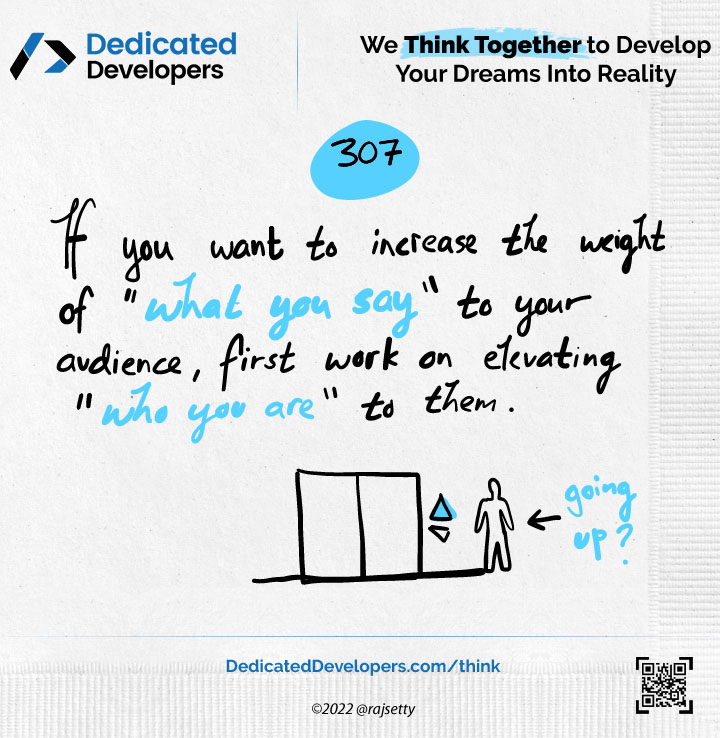 Dedicated
Developers
We Think Together to Develop
Your Dreams Into Reality
307
If you want to increase the weight
of "what you say" to your
audience, first work on elevating
"who you are" to them.
going
up?
DedicatedDevelopers.com/think
©2022 @rajsetty